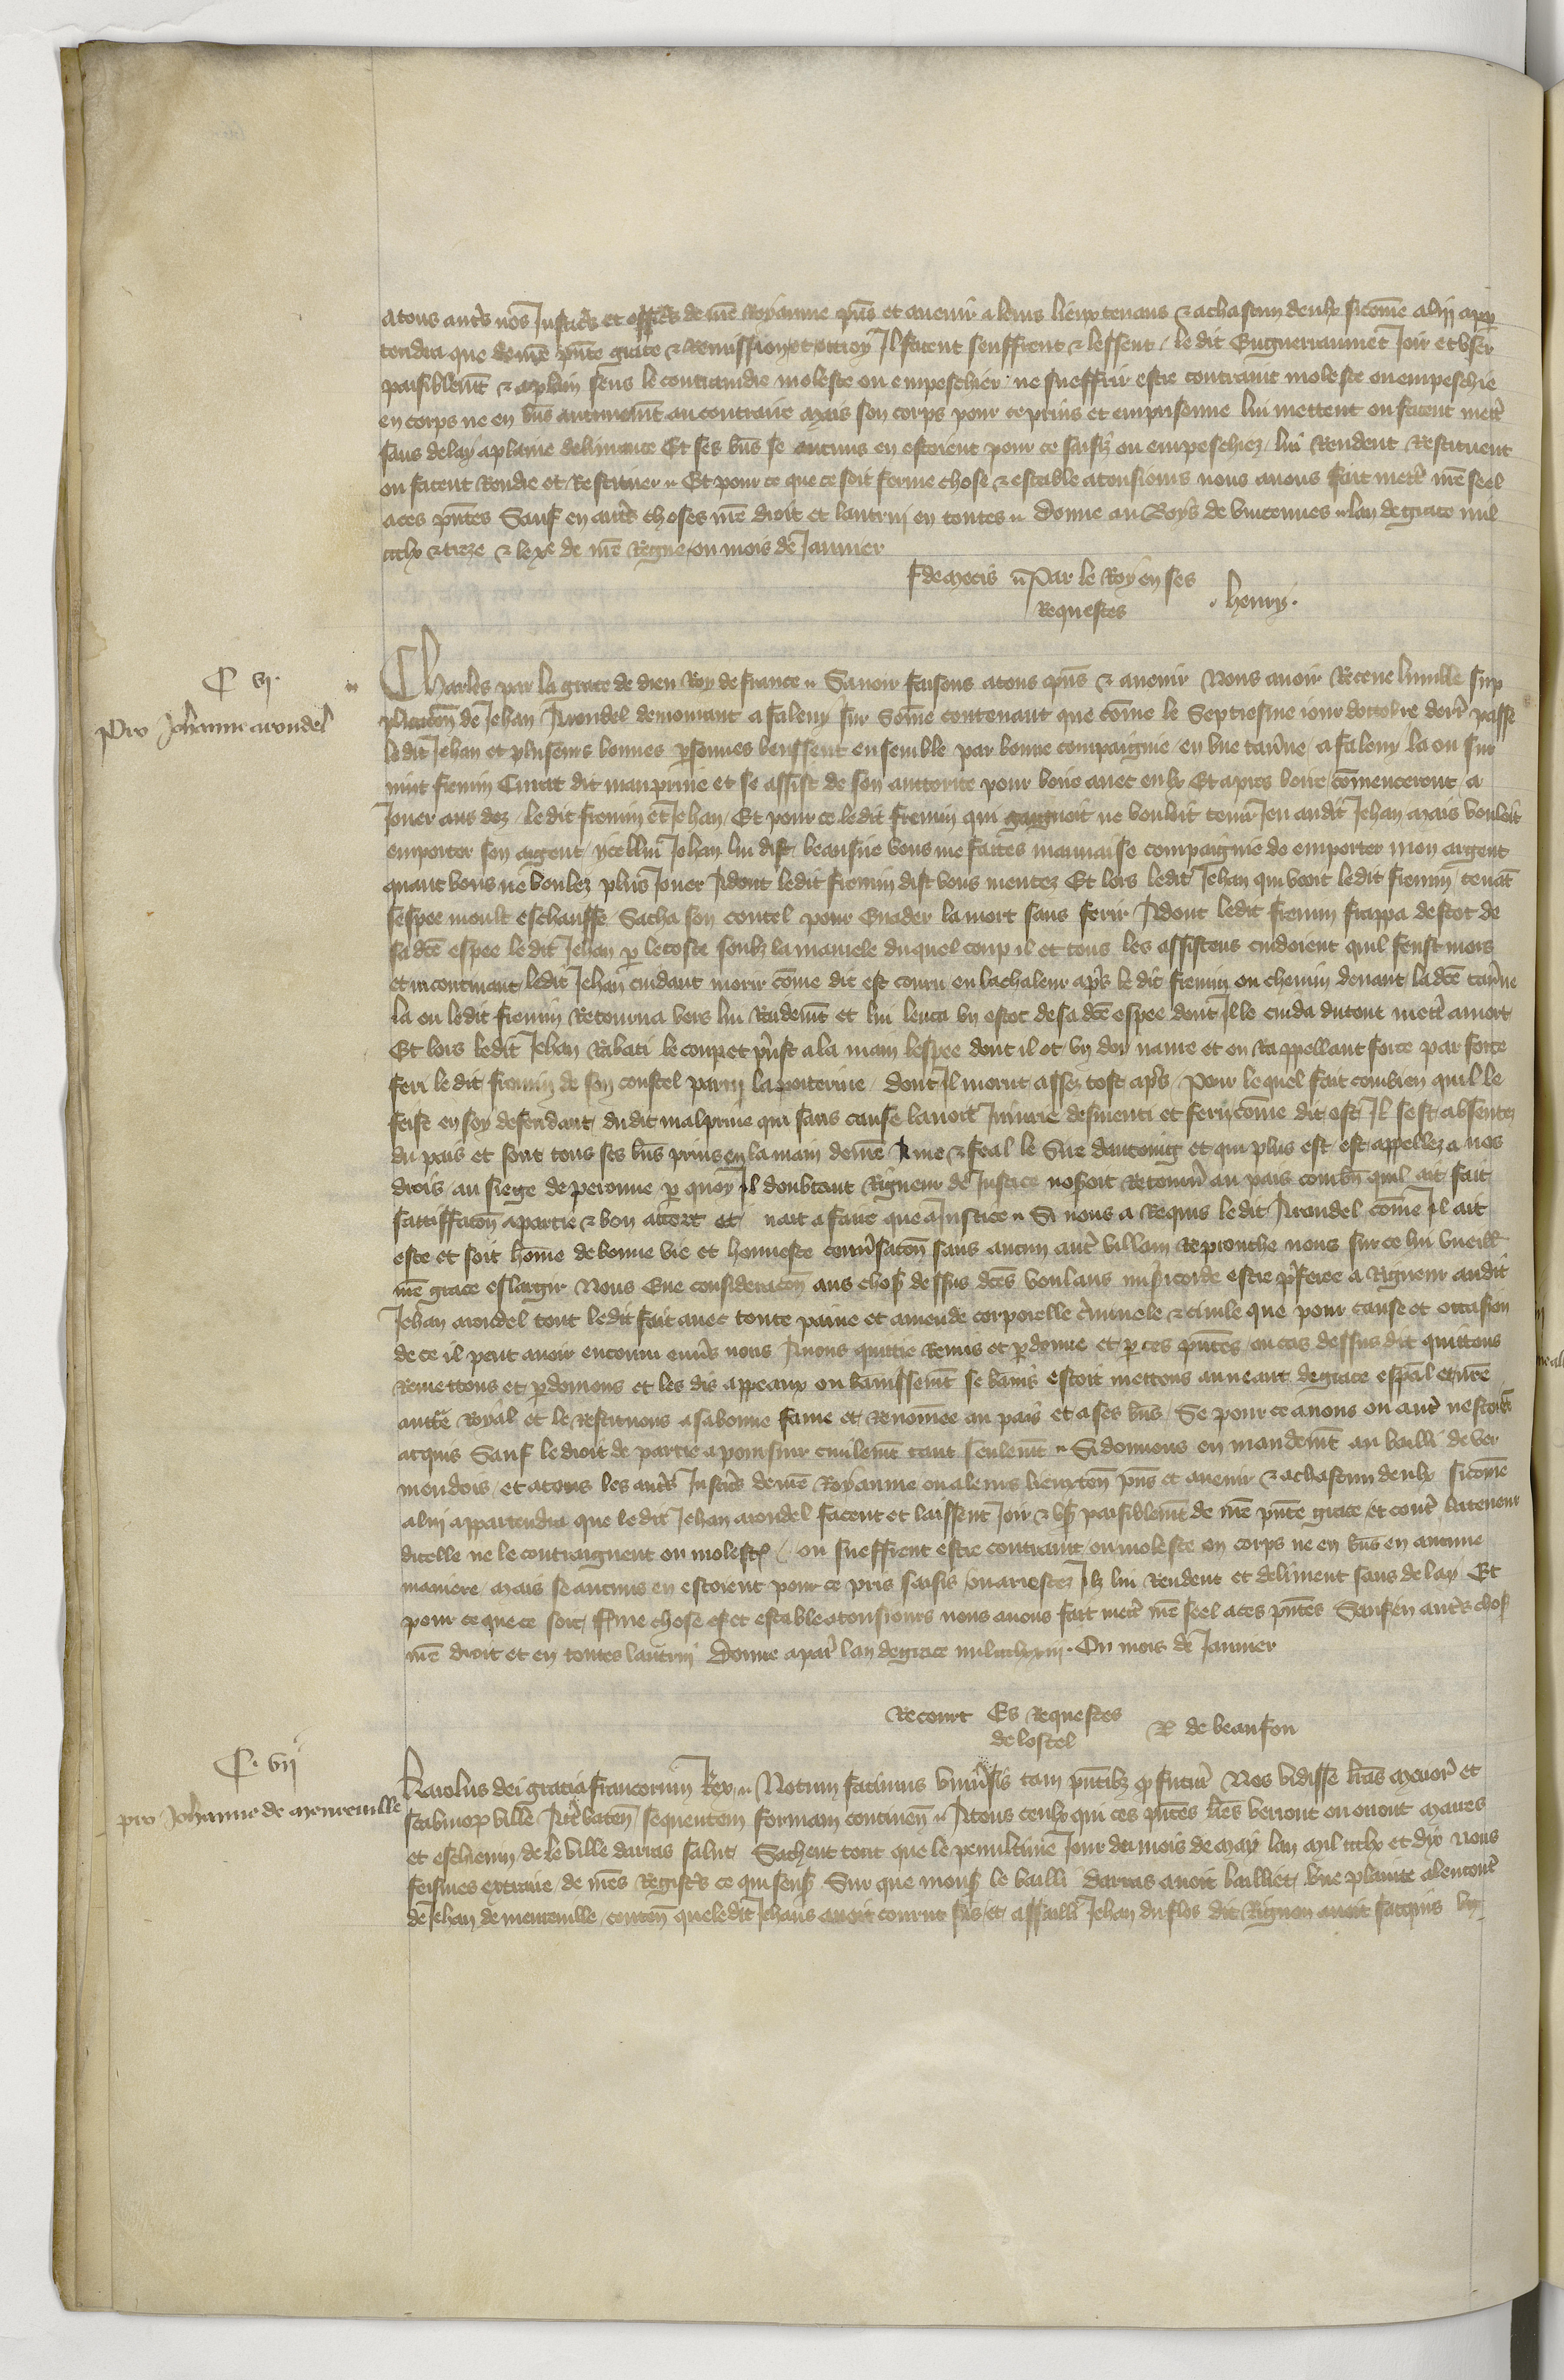 atous autrs nos Justiciers et officiers de nre Royaume pns et auenir a leurs lieux tenans & achascun deulx sicome a lui appar
tendra que de nre pnte grace & Remission et ottroy Il facent seuffrent & lessent le dit Enguerrannet Joir et vser
paisiblemt & aplain sens le contraindre molester ou empeschier ne sueffrir estre contraint moleste ou empeschie
en corps ne en biens autremet au contraire Mais son corps pour ce prins et emprisonne lui mettent ou facent mettr
sans delay a plaine deliurance Et ses biens se aucuns en estoient pour ce saisiz ou empeschiez lui Rendent Restituent
ou facent Rendre et Restituer Et pour ce que ce soit ferme chose & estable atousiours nous auons fait mettr nre seel
aces pntes Sauf en autrs choses nre droit et lautruy en toutes Donne au Boys de Vincennes lan de grace mil
ccclx & treze & le xe de nre Regne ou mois de Januier
J de Mecis Par le Roy en ses
Requestes . henry .
C vj.
Pro Johanne arondel
Charles par la grace de dieu Roy de france Sauoir faisons atous pns & auenir Nous auoir Receue lumille sup
plicaton de Jehan Arondel demourant a faleuy sur Some contenant que come le Septiesme iour doctobre derr passe
ledit Jehan et plusieurs bonnes psonnes beussent ensemble par bonne compaignie en vne tauerne a faleuy la ou sur
uint fremin Curat dit mauprime et se assist de son auttorite pour boire auec eulx Et apres boire comencerent a
Jouer aus dez ledit fremin et Jehan Et pour ce ledit fremin qui gaignoit ne vouloit tenir Jeu audit Jehan Mais vouloit
emporter son argent ycellui Jehan lui dist beausire vous me faites mauuaise compaignie de emporter mon argent
quant vous ne voulez plus Jouer Adont ledit fremin dist vous mentez Et lors ledit Jehan qui veoit ledit fremin tenat
sespee moult eschauffe Sacha son coutel pour Euader la mort sans ferir Adont ledit fremin frappa destoc de
sa dce espee ledit Jehan p le coste soubz la mamele duquel coup il et tous les assistens cuidoient quil feust mors
et incontinant ledit Jehan cuidant morir come dit est couru en la chaleur aprs le dit fremin ou chemin deuant la dce tauerne
la ou ledit fremin Retourna vers lui Rudemt et lui lenca vn estoc de sa dce espee dont Il le cuida du tout mettr a mort
Et lors ledit Jehan Rabati le coup et prist a la main lespee dont il et vn doy naure et en Rappellant force par force
feri le dit fremin de son coustel parmi la poiterine dont Il morut assez tost aprs Pour lequel fait combien quil le
feist en soy defendant du dit malprime qui sans cause lauoit Iniurie desmenti et feru come dit est Il sest absentez
du pais et sont tous ses bns prins en la main de nre Ame & feal le Sire dantoing et qui plus est est appellez a nos
drois au siege de peronne p quoy Il doubtant Rigueur de Justice noseroit Retourner au pais combn quil ait fait
sattiffaton a partie & bon accort et nait a faire que a Justice Si nous a Requis le dit Arondel come Il ait
este et soit home de bonne vie et honneste conuersaton sans aucun autr villain Reprouche nous sur ce lui vueill
nre grace eslargir Nous Eue consideraton aus choss dessus dces voulans misericorde estre preferee a Rigueur audit
Jehan arondel tout ledit fait auec toute paine et amende corporelle criminele & ciuile que pour cause et occasion
de ce il peut auoir encouru enuers nous Auons quittie Remis et pdonne et p ces pntes ou cas dessus dit quittons
Remettons et pdonnons et les dis appeaux ou banissemt se banis estoit mettons au neant de grace espal et nre
auttie Royal et le Restituons a sa bonne fame et Renomee au pais et a ses bns Se pour ce a nous ou autr nestoiet
acquis Sauf le droit de partie a poursuir ciuilemt tant seulemt Si donnons en mandemt au bailli de ver
mendois et atous les autrs Justicrs de nre Royaume ou a leurs lieuxten pns et auenir & achascun deulx sicome
a lui appartendra que ledit Jehan arondel facent et laissent Joir & vsr paisiblemt de nre pnte grace et contr la teneur
dicelle ne le contraignent ou molest ou sueffrent estre contraint ou moleste en corps ne en bns en aucune
maniere Mais se aucuns en estoient pour ce pris saisis ou arrestez Ilz lui Rendent et deliurent sans delay Et
pour ce que ce soit ferme chose et estable atousiours nous auons fait mettr nre seel aces pntes Sauf en autrs choss
nre droit et en toutes lautruy Donne a paris lan de grace mil ccclxxiij . Ou mois de Januier
Recourt Es Requestes
de lostel R de beaufou
C. vij
pro Johanne de Meureuille
Karolus dei gratia francorum Rex Notum facimus vniuersis tam pntibz qm futuris Nos vidisse lras Maioris et
scabinorum ville Attrebaten sequentem formam continen Atous ceulx qui ces pntes lres verront ou orront Maires
et escheuin de le ville darras salut Sachent tout que le penultime Jour du mois de May lan Mil ccclx et dix nous
feismes extraire de nres Registrs ce qui sensuit Sur que mons le bailli darras auoit bailliet vne plainte alencontr
de Jehan de meureuille conten que ledit Jehans auoit courut sus et assailli Jehan du flos dit Rignon auoit sacquis vn